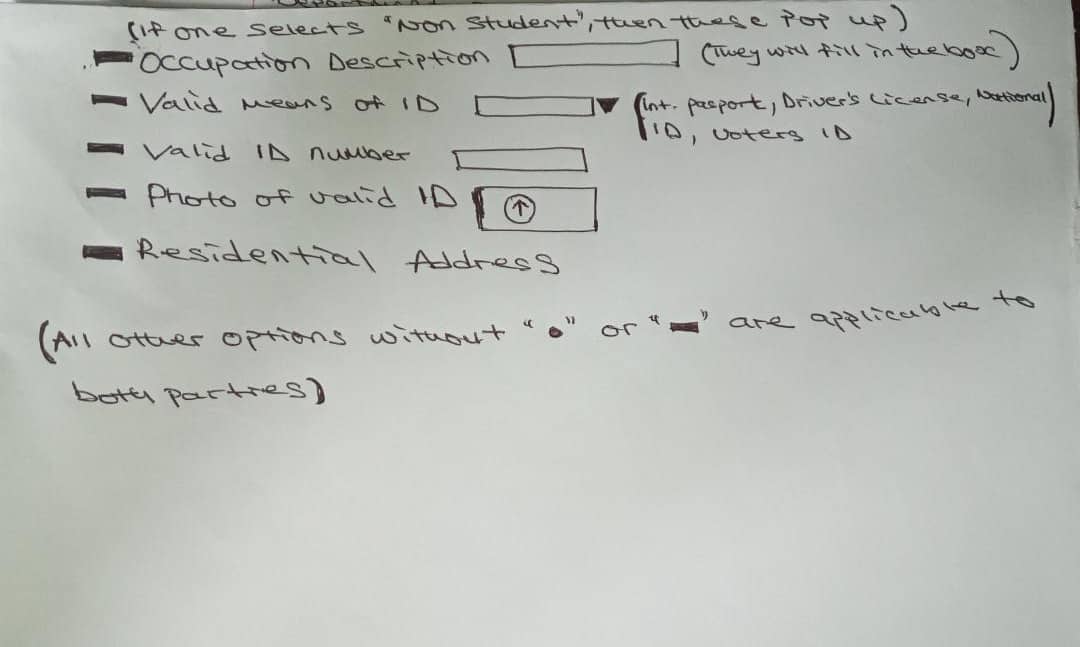 (If one selects "Non Student", then these Pop up)
Occupation Description (They will fill in the box)
Valid means of ID (Int. pasport, Driver's License, National
ID, Voters ID)
Valid ID number
Photo of valid ID
Residential Address
(All other options without "•" or "▬" are applicable to
both parties)